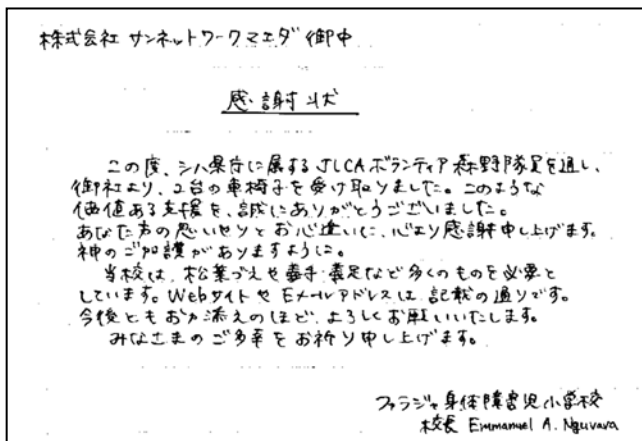 株式会社 サンネットワークマエダ 御中
感謝状
この度、シハ県庁に属するJICAボランティア森野隊員を通し、
御社より、2台の車椅子を受け取りました。このような
価値ある支援を、誠にありがとうございました。
あなた方の思いやりとお心遣いに、心より感謝申し上げます。
神のご加護がありますように。
当校は、松葉づえや義手・義足など多くのものを必要と
しています。Webサイトや Eメールアドレスは、記載の通りです。
今後ともお力添えのほど、よろしくお願いいたします。
みなさまのご多幸をお祈り申し上げます。
ファラジャ身体障害児小学校
校長 Emmanuel A. Nguvava